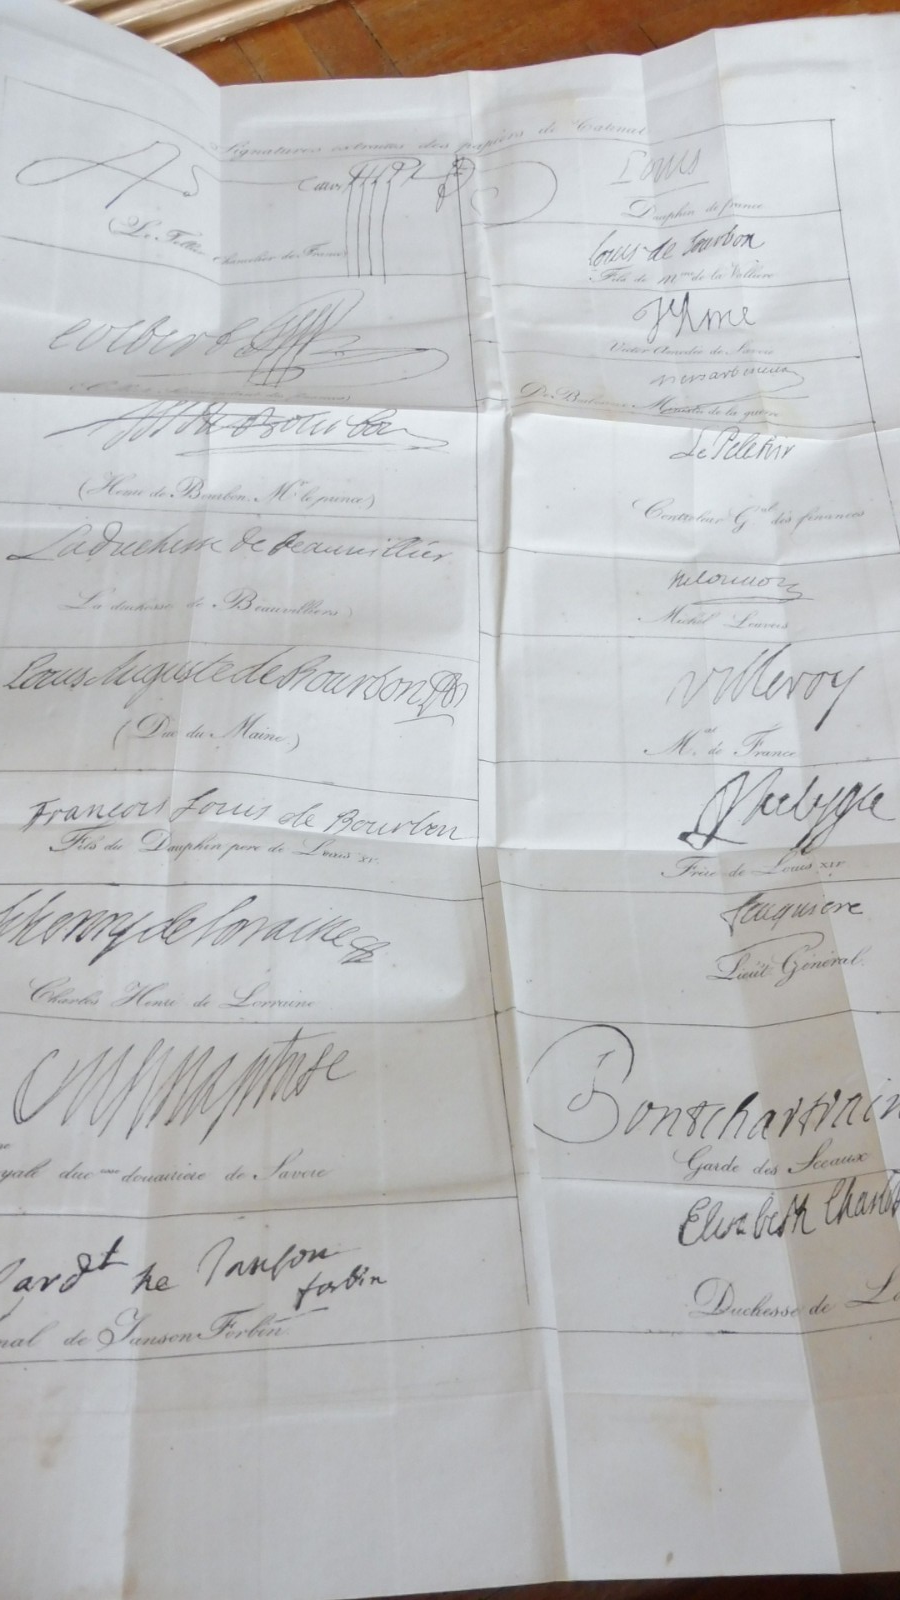 Signatures extraites des papiers de Catinat
(Le Tellier Chancelier de France)
Colbert
Henri de Bourbon
(Henri de Bourbon. Mr le prince)
La duchesse de Beauvillier
La duchesse de Beauvilliers)
Louis Auguste de Bourbon
(Duc du Maine.)
François Louis de Bourbon
Fils du Dauphin pere de Louis XV.
henry de Lorraine
Charles Henri de Lorraine
yale duc douairiere de Savoie
Card^t de Janson
forbin
nal de Janson Forbin
Louis
Dauphin de france
Louis de bourbon
Fils de Mme de la Valliere
Victor Amedée de Savoie
Ministre de la guerre
Le Peletier
Controleur G^al des finances
Michel
Villeroy
M^al de France
Phelippe
Frère de Louis XIV
feuquiere
Lieut Général.
Pontchartrain
Garde des Sceaux
Elisabeth Charlot
Duchesse de Lo